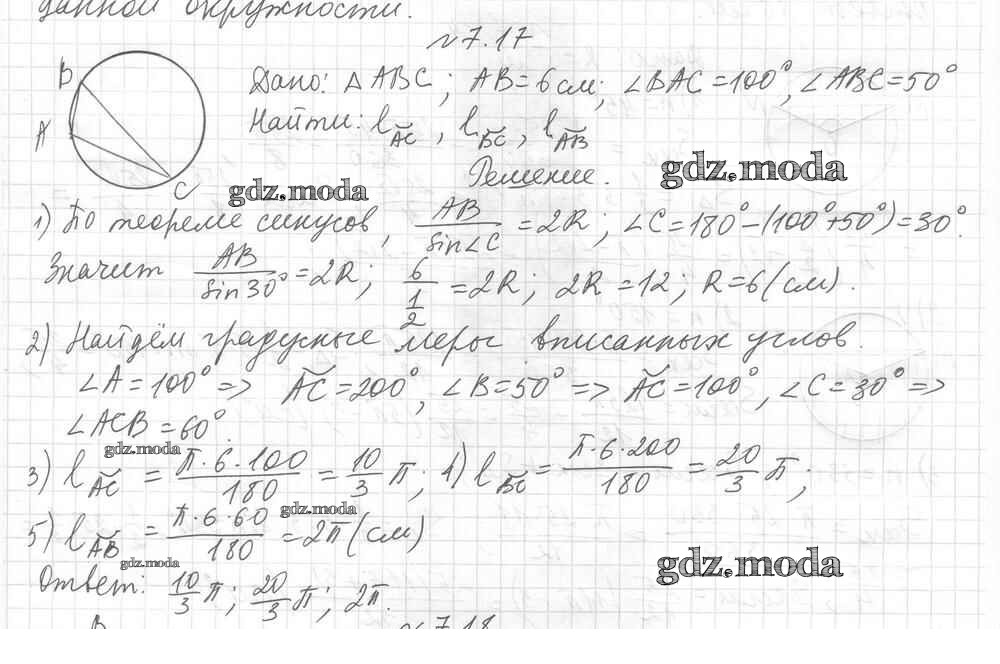 данной окружности.
№7.17
B
A
C
Дано: △ABC; AB=6см; ∠BAC=100°, ∠ABC=50°
Найти: l_{AC}, l_{BC}, l_{AB}
Решение.
gdz.moda
gdz.moda
1) По теореме синусов, AB/sin∠C = 2R; ∠C=180°−(100°+50°)=30°.
Значит AB/sin30° = 2R; 6/(1/2) = 2R; 2R=12; R=6(см).
2) Найдём градусные меры вписанных углов.
∠A=100° => AC=200°, ∠B=50° => AC=100°, ∠C=30° =>
∠ACB=60°.
gdz.moda
3) l_{AC} = π·6·100/180 = 10/3 π; 4) l_{BC} = π·6·200/180 = 20/3 π;
gdz.moda
5) l_{AB} = π·6·60/180 = 2π(см)
gdz.moda
gdz.moda
Ответ: 10/3 π; 20/3 π; 2π.
B
№7.18